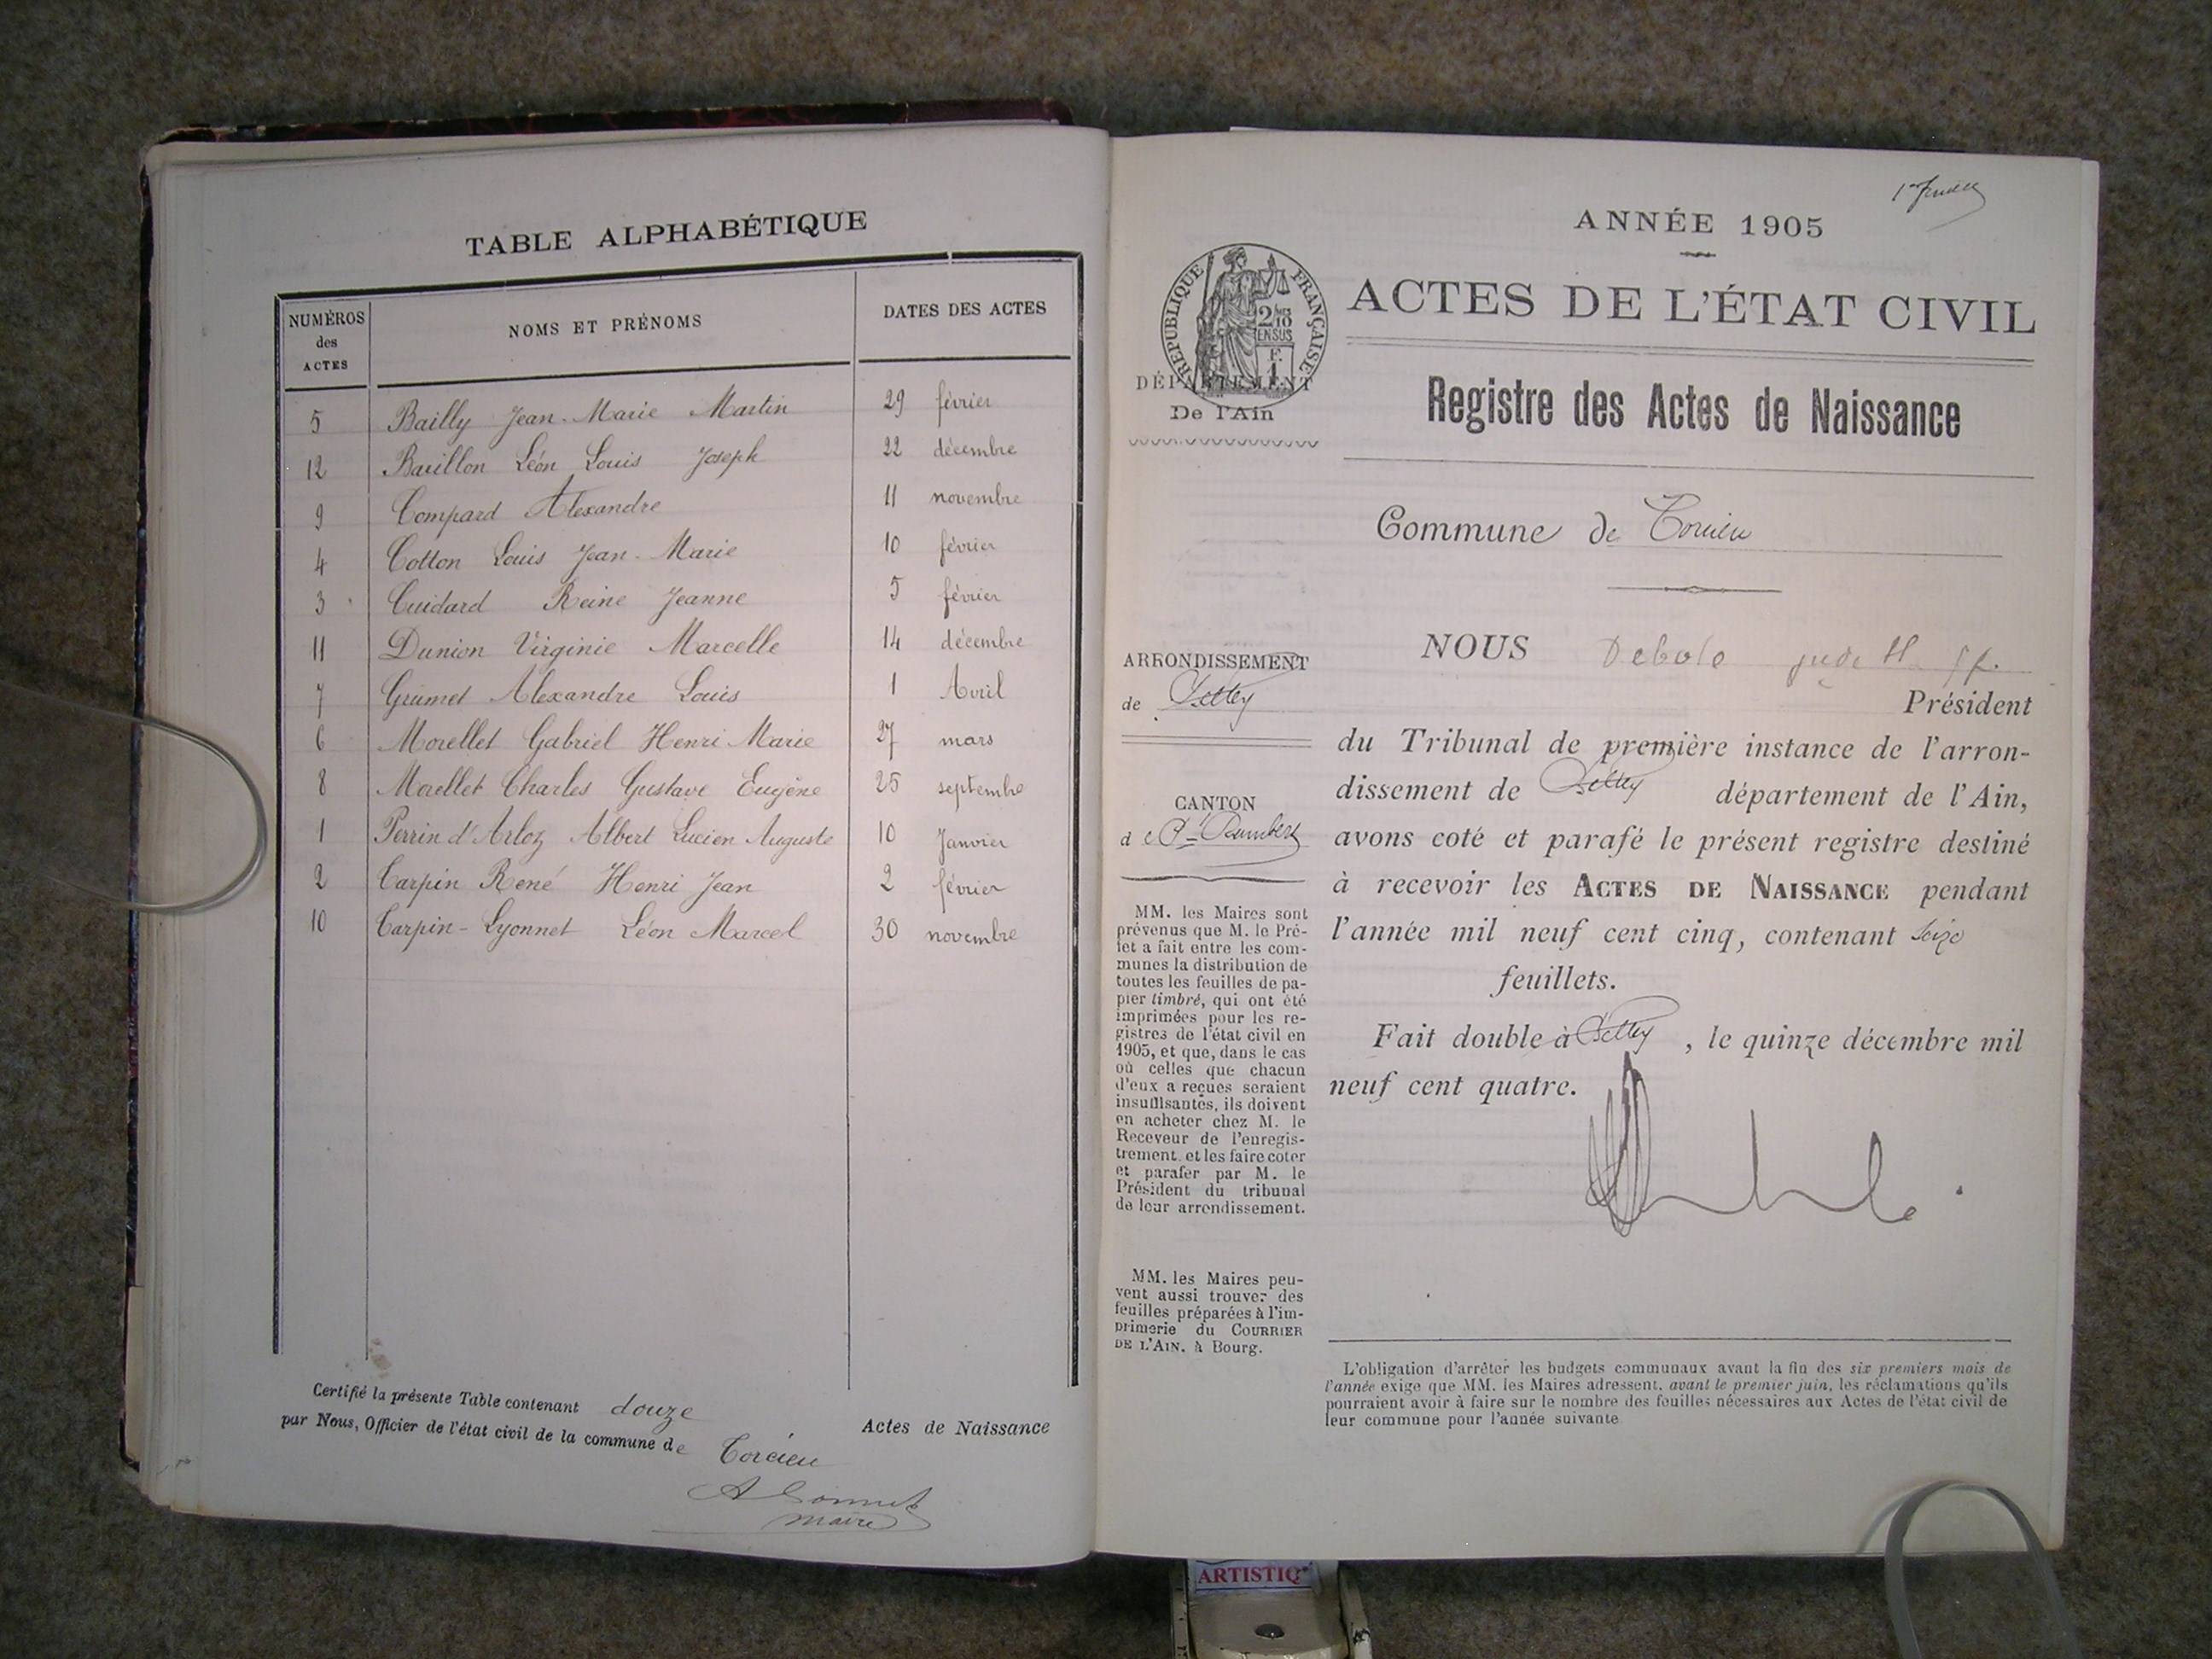 TABLE ALPHABÉTIQUE
NUMÉROS des ACTES
NOMS ET PRÉNOMS
DATES DES ACTES
5 Bailly Jean-Marie Martin 29 février
12 Barillon Léon Louis Joseph 22 décembre
9 Compard Alexandre 11 novembre
4 Cotton Louis Jean-Marie 10 février
3 Cuidard Reine Jeanne 5 février
11 Dunion Virginie Marcelle 14 décembre
7 Grumet Alexandre Louis 1 Avril
6 Morellet Gabriel Henri Marie 27 mars
8 Morellet Charles Gustave Eugène 25 septembre
1 Perrin d'Arloz Albert Lucien Auguste 10 Janvier
2 Carpin René Henri Jean 2 février
10 Carpin-Lyonnet Léon Marcel 30 novembre
Certifié la présente Table contenant douze Actes de Naissance
par Nous, Officier de l'état civil de la commune de Torcieu
maire
ANNÉE 1905
RÉPUBLIQUE FRANÇAISE
ACTES DE L'ÉTAT CIVIL
DÉPARTEMENT
De l'Ain
Registre des Actes de Naissance
Commune de Torcieu
ARRONDISSEMENT
de Belley
CANTON
de St Rambert
MM. les Maires sont
prévenus que M. le Pré-
fet a fait entre les com-
munes la distribution de
toutes les feuilles de pa-
pier timbré, qui ont été
imprimées pour les re-
gistres de l'état civil en
1905, et que, dans le cas
où celles que chacun
d'eux a reçues seraient
insuffisantes, ils doivent
en acheter chez M. le
Receveur de l'enregis-
trement, et les faire coter
et parafer par M. le
Président du tribunal
de leur arrondissement.
MM. les Maires peu-
vent aussi trouver des
feuilles préparées à l'im-
primerie du COURRIER
DE L'AIN, à Bourg.
NOUS
Président
du Tribunal de première instance de l'arron-
dissement de Belley département de l'Ain,
avons coté et parafé le présent registre destiné
à recevoir les ACTES DE NAISSANCE pendant
l'année mil neuf cent cinq, contenant seize
feuillets.
Fait double à Belley, le quinze décembre mil
neuf cent quatre.
L'obligation d'arrêter les budgets communaux avant la fin des six premiers mois de
l'année exige que MM. les Maires adressent, avant le premier juin, les réclamations qu'ils
pourraient avoir à faire sur le nombre des feuilles nécessaires aux Actes de l'état civil de
leur commune pour l'année suivante
ARTISTIQ